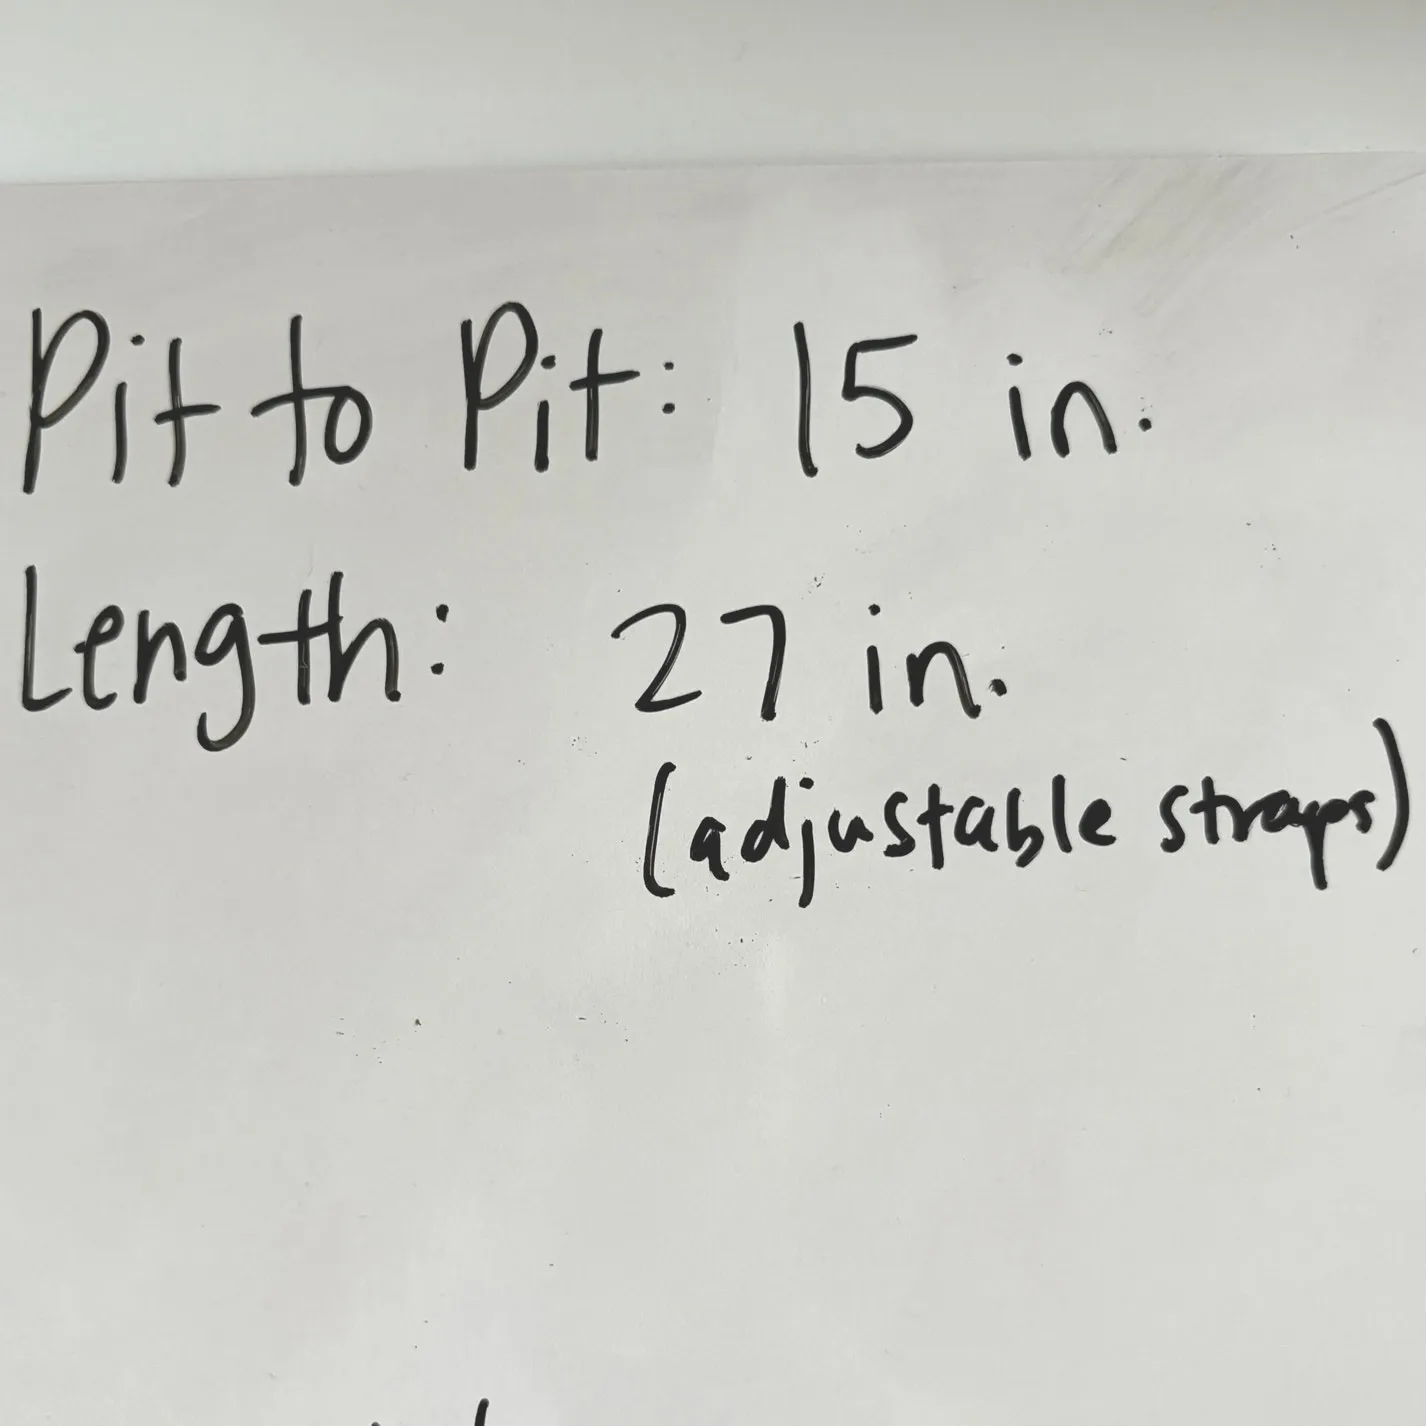 Pit to Pit: 15 in.
Length: 27 in.
(adjustable straps)